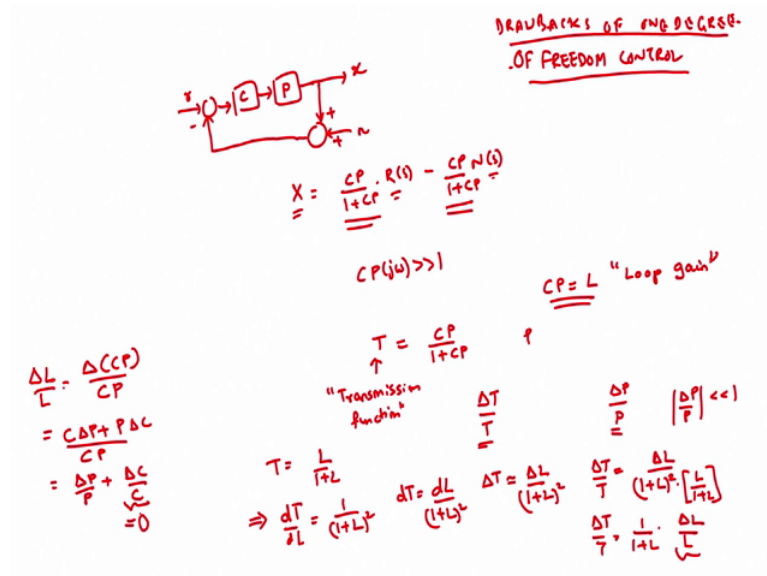 DRAWBACKS OF ONE DEGREE.
.OF FREEDOM CONTROL
r
-
C
P
x
+
+
n
X = CP/1+CP . R(s) - CP/1+CP N(s)
CP(jω)>>1
CP = L "Loop gain"
T = CP/1+CP
"Transmission function"
ΔT/T
ΔP/P
|ΔP/P| <<1
ΔL/L = Δ(CP)/CP
= CΔP + PΔC/CP
= ΔP/P + ΔC/C
=0
T = L/1+L
⇒ dT/dL = 1/(1+L)²
dT = dL/(1+L)²
ΔT = ΔL/(1+L)²
ΔT/T = ΔL/(1+L)².[L/1+L]
ΔT/T = 1/1+L . ΔL/L